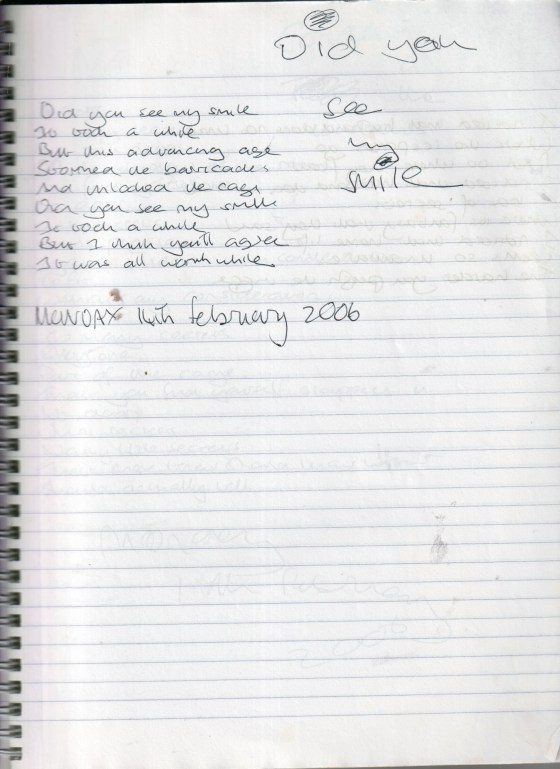 Did you
see
my
smile
Did you see my smile
It took a while
But this advancing age
Stormed de barricades
And unlocked de cage
Did you see my smile
It took a while
But I think you'll agree
It was all worthwhile
MONDAY 14th february 2006